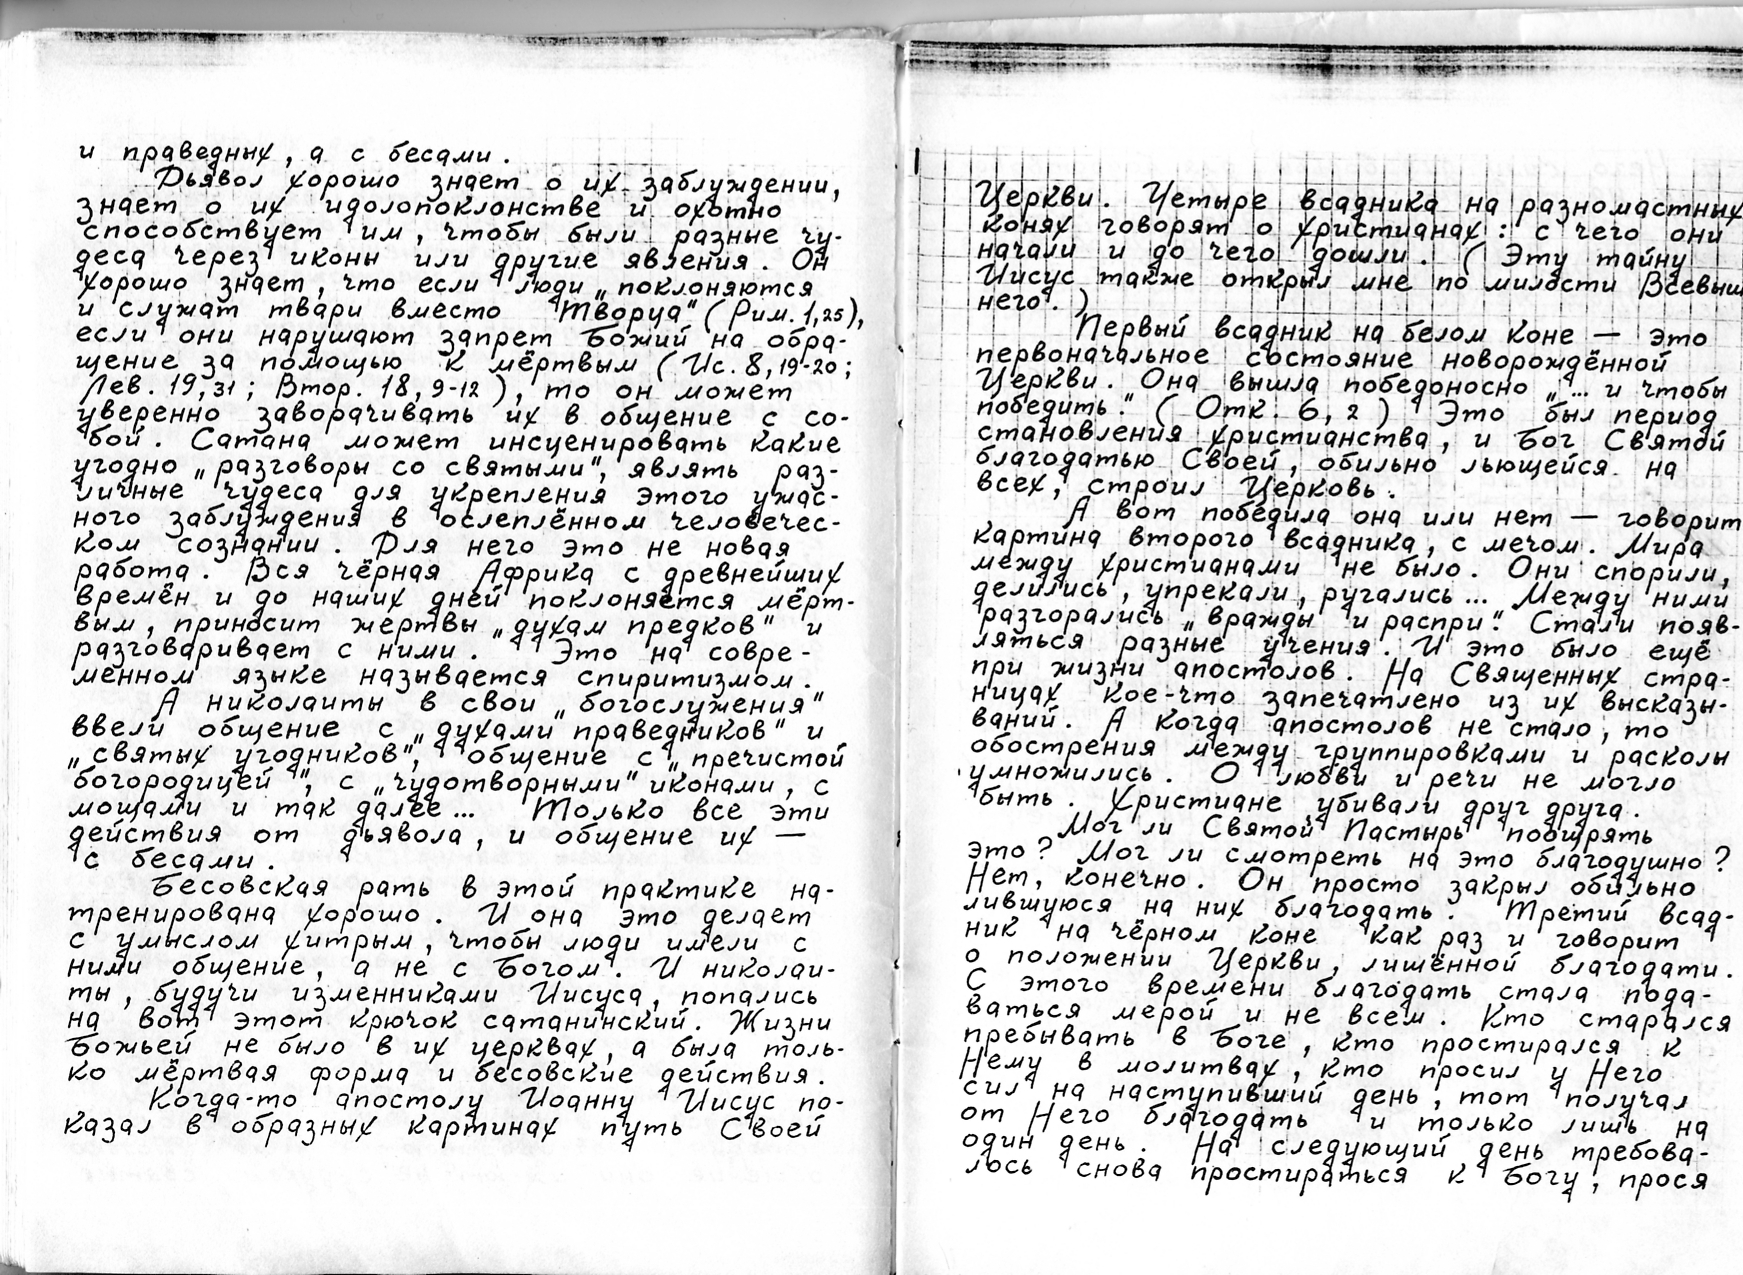 и праведных, а с бесами.
Дьявол хорошо знает о их заблуждении,
знает о их идолопоклонстве и охотно
способствует им, чтобы были разные чу-
деса через иконы или другие явления. Он
хорошо знает, что если люди „поклоняются
и служат твари вместо Творца" (Рим. 1,25),
если они нарушают запрет Божий на обра-
щение за помощью к мёртвым (Ис. 8, 19-20;
Лев. 19, 31; Втор. 18, 9-12), то он может
уверенно заворачивать их в общение с со-
бой. Сатана может инсценировать какие
угодно „разговоры со святыми", являть раз-
личные чудеса для укрепления этого ужас-
ного заблуждения в ослеплённом человечес-
ком сознании. Для него это не новая
работа. Вся чёрная Африка с древнейших
времён и до наших дней поклоняется мёрт-
вым, приносит жертвы „духам предков" и
разговаривает с ними. Это на совре-
менном языке называется спиритизмом.
А николаиты в свои „богослужения"
ввели общение с „духами праведников" и
„святых угодников", общение с „пречистой
богородицей", с „чудотворными" иконами, с
мощами и так далее... Только все эти
действия от дьявола, и общение их —
с бесами.
Бесовская рать в этой практике на-
тренирована хорошо. И она это делает
с умыслом хитрым, чтобы люди имели с
ними общение, а не с Богом. И николаи-
ты, будучи изменниками Иисуса, попались
на вот этот крючок сатанинский. Жизни
Божьей не было в их церквах, а была толь-
ко мёртвая форма и бесовские действия.
Когда-то апостолу Иоанну Иисус по-
казал в образных картинах путь Своей
Церкви. Четыре всадника на разномастных
конях говорят о христианах: с чего они
начали и до чего дошли. (Эту тайну
Иисус также открыл мне по милости Всевыш
него.)
Первый всадник на белом коне — это
первоначальное состояние новорождённой
Церкви. Она вышла победоносно „... и чтобы
победить." (Отк. 6, 2) Это был период
становления христианства, и Бог Святой
благодатью Своей, обильно льющейся на
всех, строил Церковь.
А вот победила она или нет — говорит
картина второго всадника, с мечом. Мира
между христианами не было. Они спорили,
делились, упрекали, ругались... Между ними
разгорались „вражды и распри." Стали появ-
ляться разные учения. И это было ещё
при жизни апостолов. На Священных стра-
ницах кое-что запечатлено из их высказы-
ваний. А когда апостолов не стало, то
обострения между группировками и расколы
умножились. О любви и речи не могло
быть. Христиане убивали друг друга.
Мог ли Святой Пастырь поощрять
это? Мог ли смотреть на это благодушно?
Нет, конечно. Он просто закрыл обильно
лившуюся на них благодать. Третий всад-
ник на чёрном коне как раз и говорит
о положении Церкви, лишённой благодати.
С этого времени благодать стала пода-
ваться мерой и не всем. Кто старался
пребывать в Боге, кто простирался к
Нему в молитвах, кто просил у Него
сил на наступивший день, тот получал
от Него благодать и только лишь на
один день. На следующий день требова-
лось снова простираться к Богу, прося